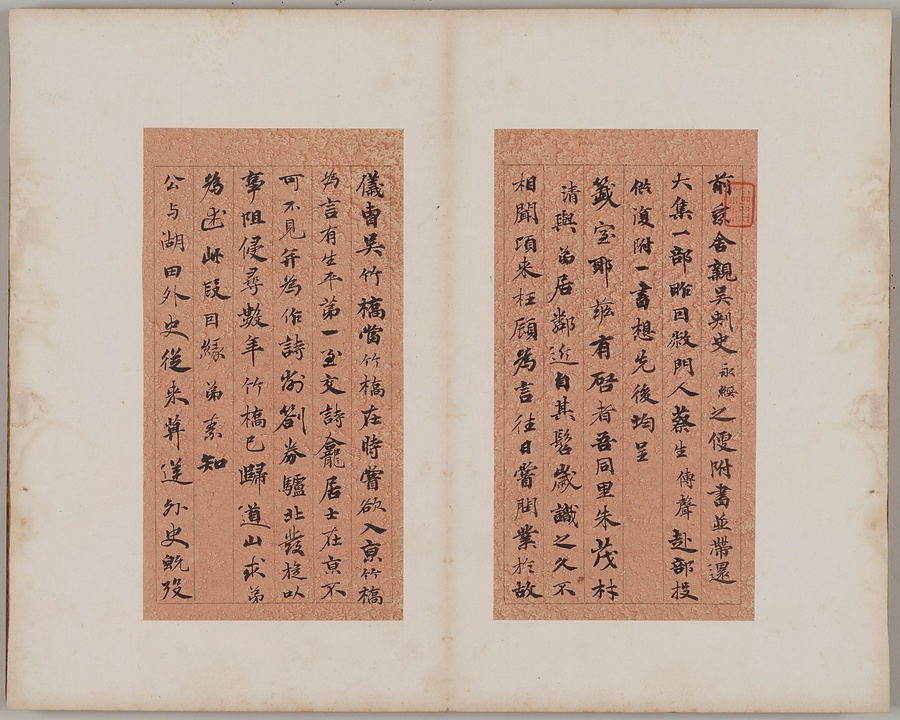 前京舍親吳刺史永綏之便附書並帶還
大集一部昨回敝門人蔡生傳聲赴部投
供復附一書想先後均呈
籖室耶茲有啓者吾同里朱茂林
清與弟居鄰近自其髫歲識之久不
相聞頃來枉顧為言往日嘗問業於故
儀曹吳竹橋當竹橋在時嘗欲入京竹橋
為言有生平第一至交詩龕居士在京不
可不見并為作詩劄劵驢北發旋以
事阻侵尋數年竹橋已歸道山求弟
為述此段因緣弟素知
公与湖田外史從來莫逆外史既歿